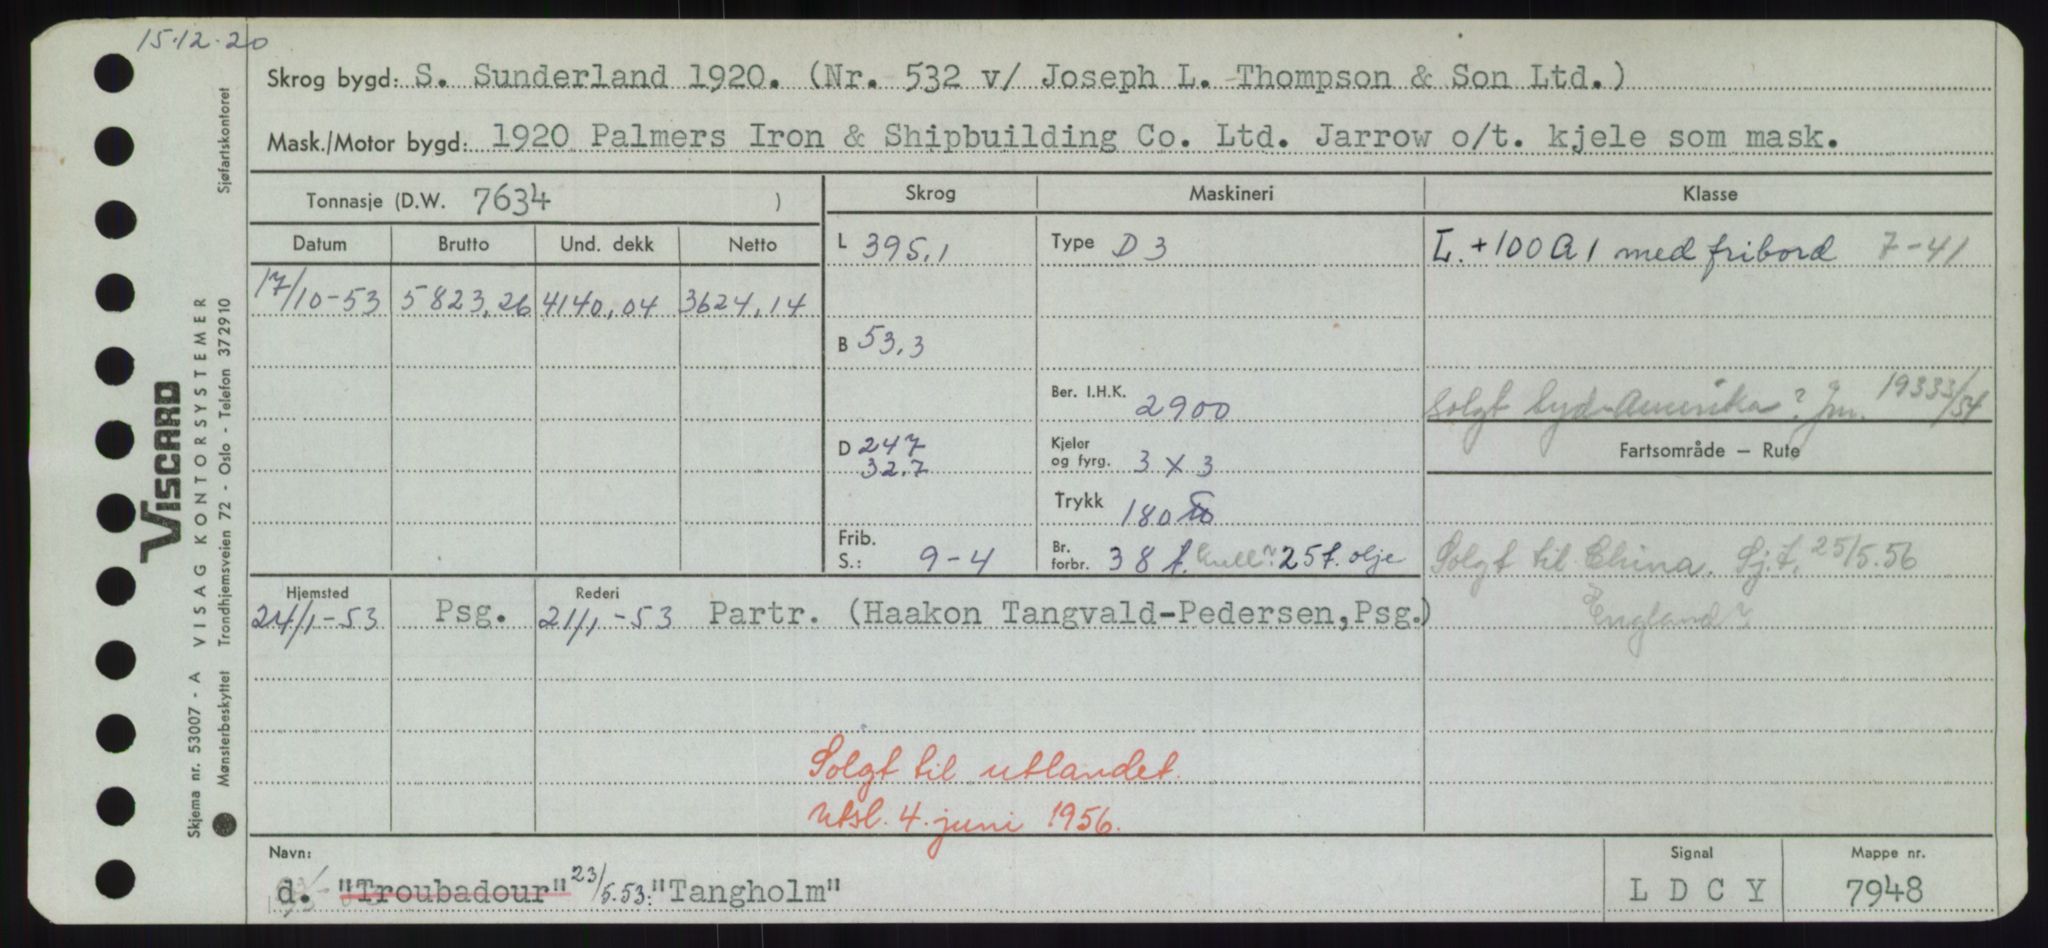 15.12.20
Skrog bygd: S. Sunderland 1920. (Nr. 532 v/ Joseph L. Thompson & Son Ltd.)
Mask./Motor bygd: 1920 Palmers Iron & Shipbuilding Co. Ltd. Jarrow o/t. kjele som mask.
Tonnasje (D.W. 7634 )
Skrog
Maskineri
Klasse
Datum Brutto Und. dekk Netto
L 395,1
Type D 3
L. +100 A 1 med fribord 7-41
17/10-53 5823,26 4140,04 3624,14
B 53,3
Ber. I.H.K. 2900
solgt Syd-Amerika? Jm. 19333/54
D 247
32.7
Kjeler
og fyrg. 3 x 3
Fartsområde – Rute
Trykk 180
Frib.
S.: 9-4
Br.
forbr. 38 t. kull? 25 t. olje
Solgt til China. Sj.t. 25/5.56
England?
Hjemsted
Rederi
21/1-53 Psg. 21/1-53 Partr. (Haakon Tangvald-Pedersen,Psg.)
Solgt til utlandet.
Utsl. 4. juni 1956.
Navn:
d. "Troubadour" 23/5.53: "Tangholm"
Signal
L D C Y
Mappe nr.
7948
VISCARD
VISAG KONTORSYSTEMER
Skjema nr. 53007 - A
Mønsterbeskyttet Trondhjemsveien 72 - Oslo - Telefon 372910 Sjøfartskontoret